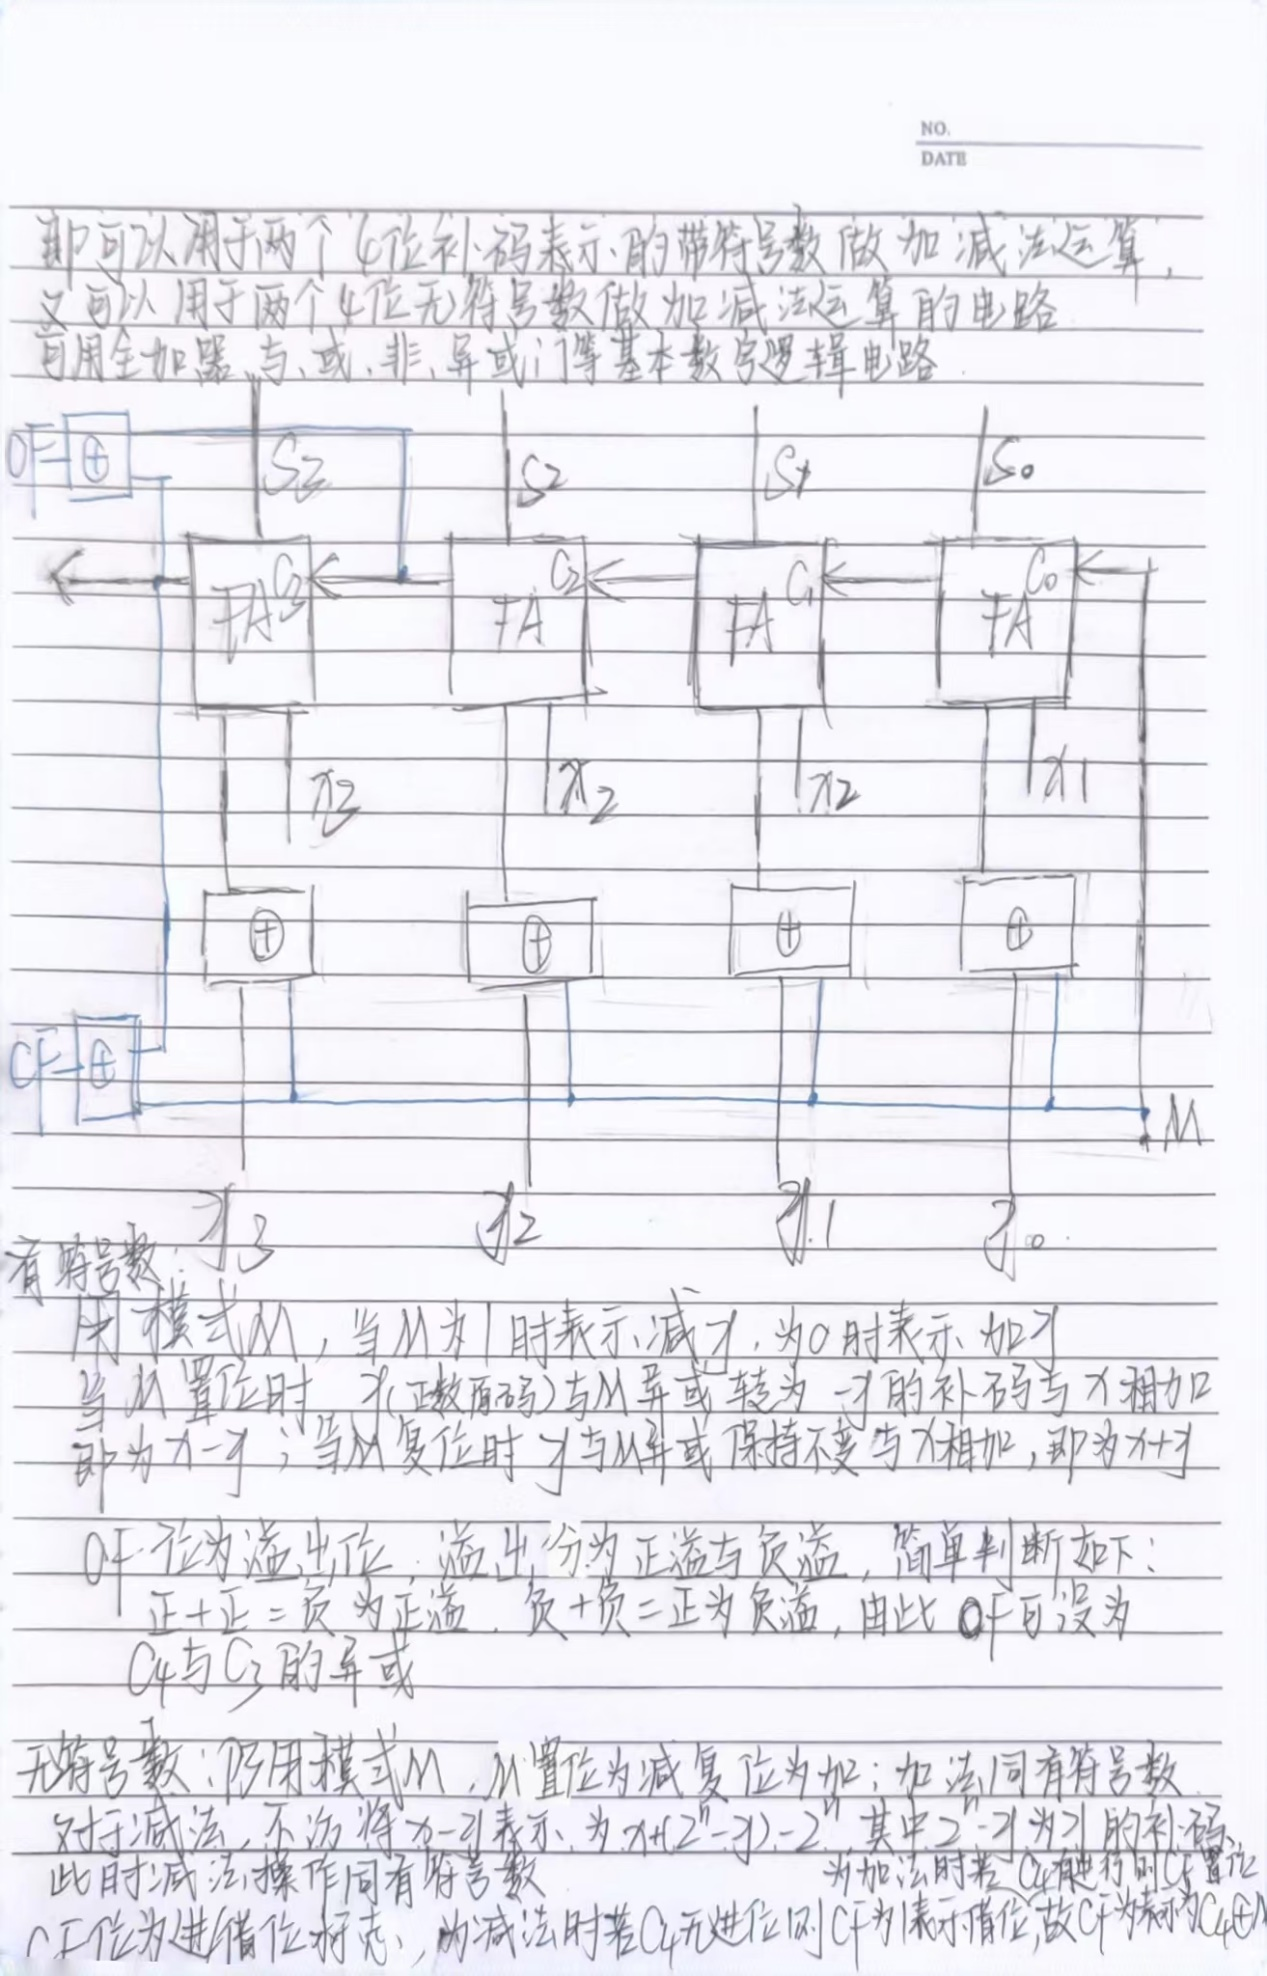 NO.
DATE
即可以用于两个4位补码表示的带符号数做加减法运算,
又可以用于两个4位无符号数做加减法运算的电路
可用全加器、与、或、非、异或门等基本数字逻辑电路
OF ⊕ S3 S2 S1 S0
C3 C2 C1 C0
FA FA FA FA
x3 x2 x2 x1
⊕ ⊕ ⊕ ⊕
CF ⊕
M
y3 y2 y1 y0
有符号数:
用模式M,当M为1时表示减y,为0时表示加y
当M置位时 y(正数原码)与M异或转为-y的补码与x相加
即为x-y;当M复位时y与M异或保持不变与x相加,即为x+y
OF位为溢出位,溢出分为正溢与负溢,简单判断如下:
正+正=负为正溢,负+负=正为负溢,由此OF可设为
C4与C3的异或
无符号数:仍用模式M,M置位为减复位为加;加法同有符号数
对于减法,不妨将x-y表示为x+(2ⁿ-y)-2ⁿ 其中2ⁿ-y为y的补码,
此时减法操作同有符号数 为加法时若C4有进位则CF置位
CF位为进借位标志,为减法时若C4无进位则CF为1表示借位,故CF为表示为C4⊕M